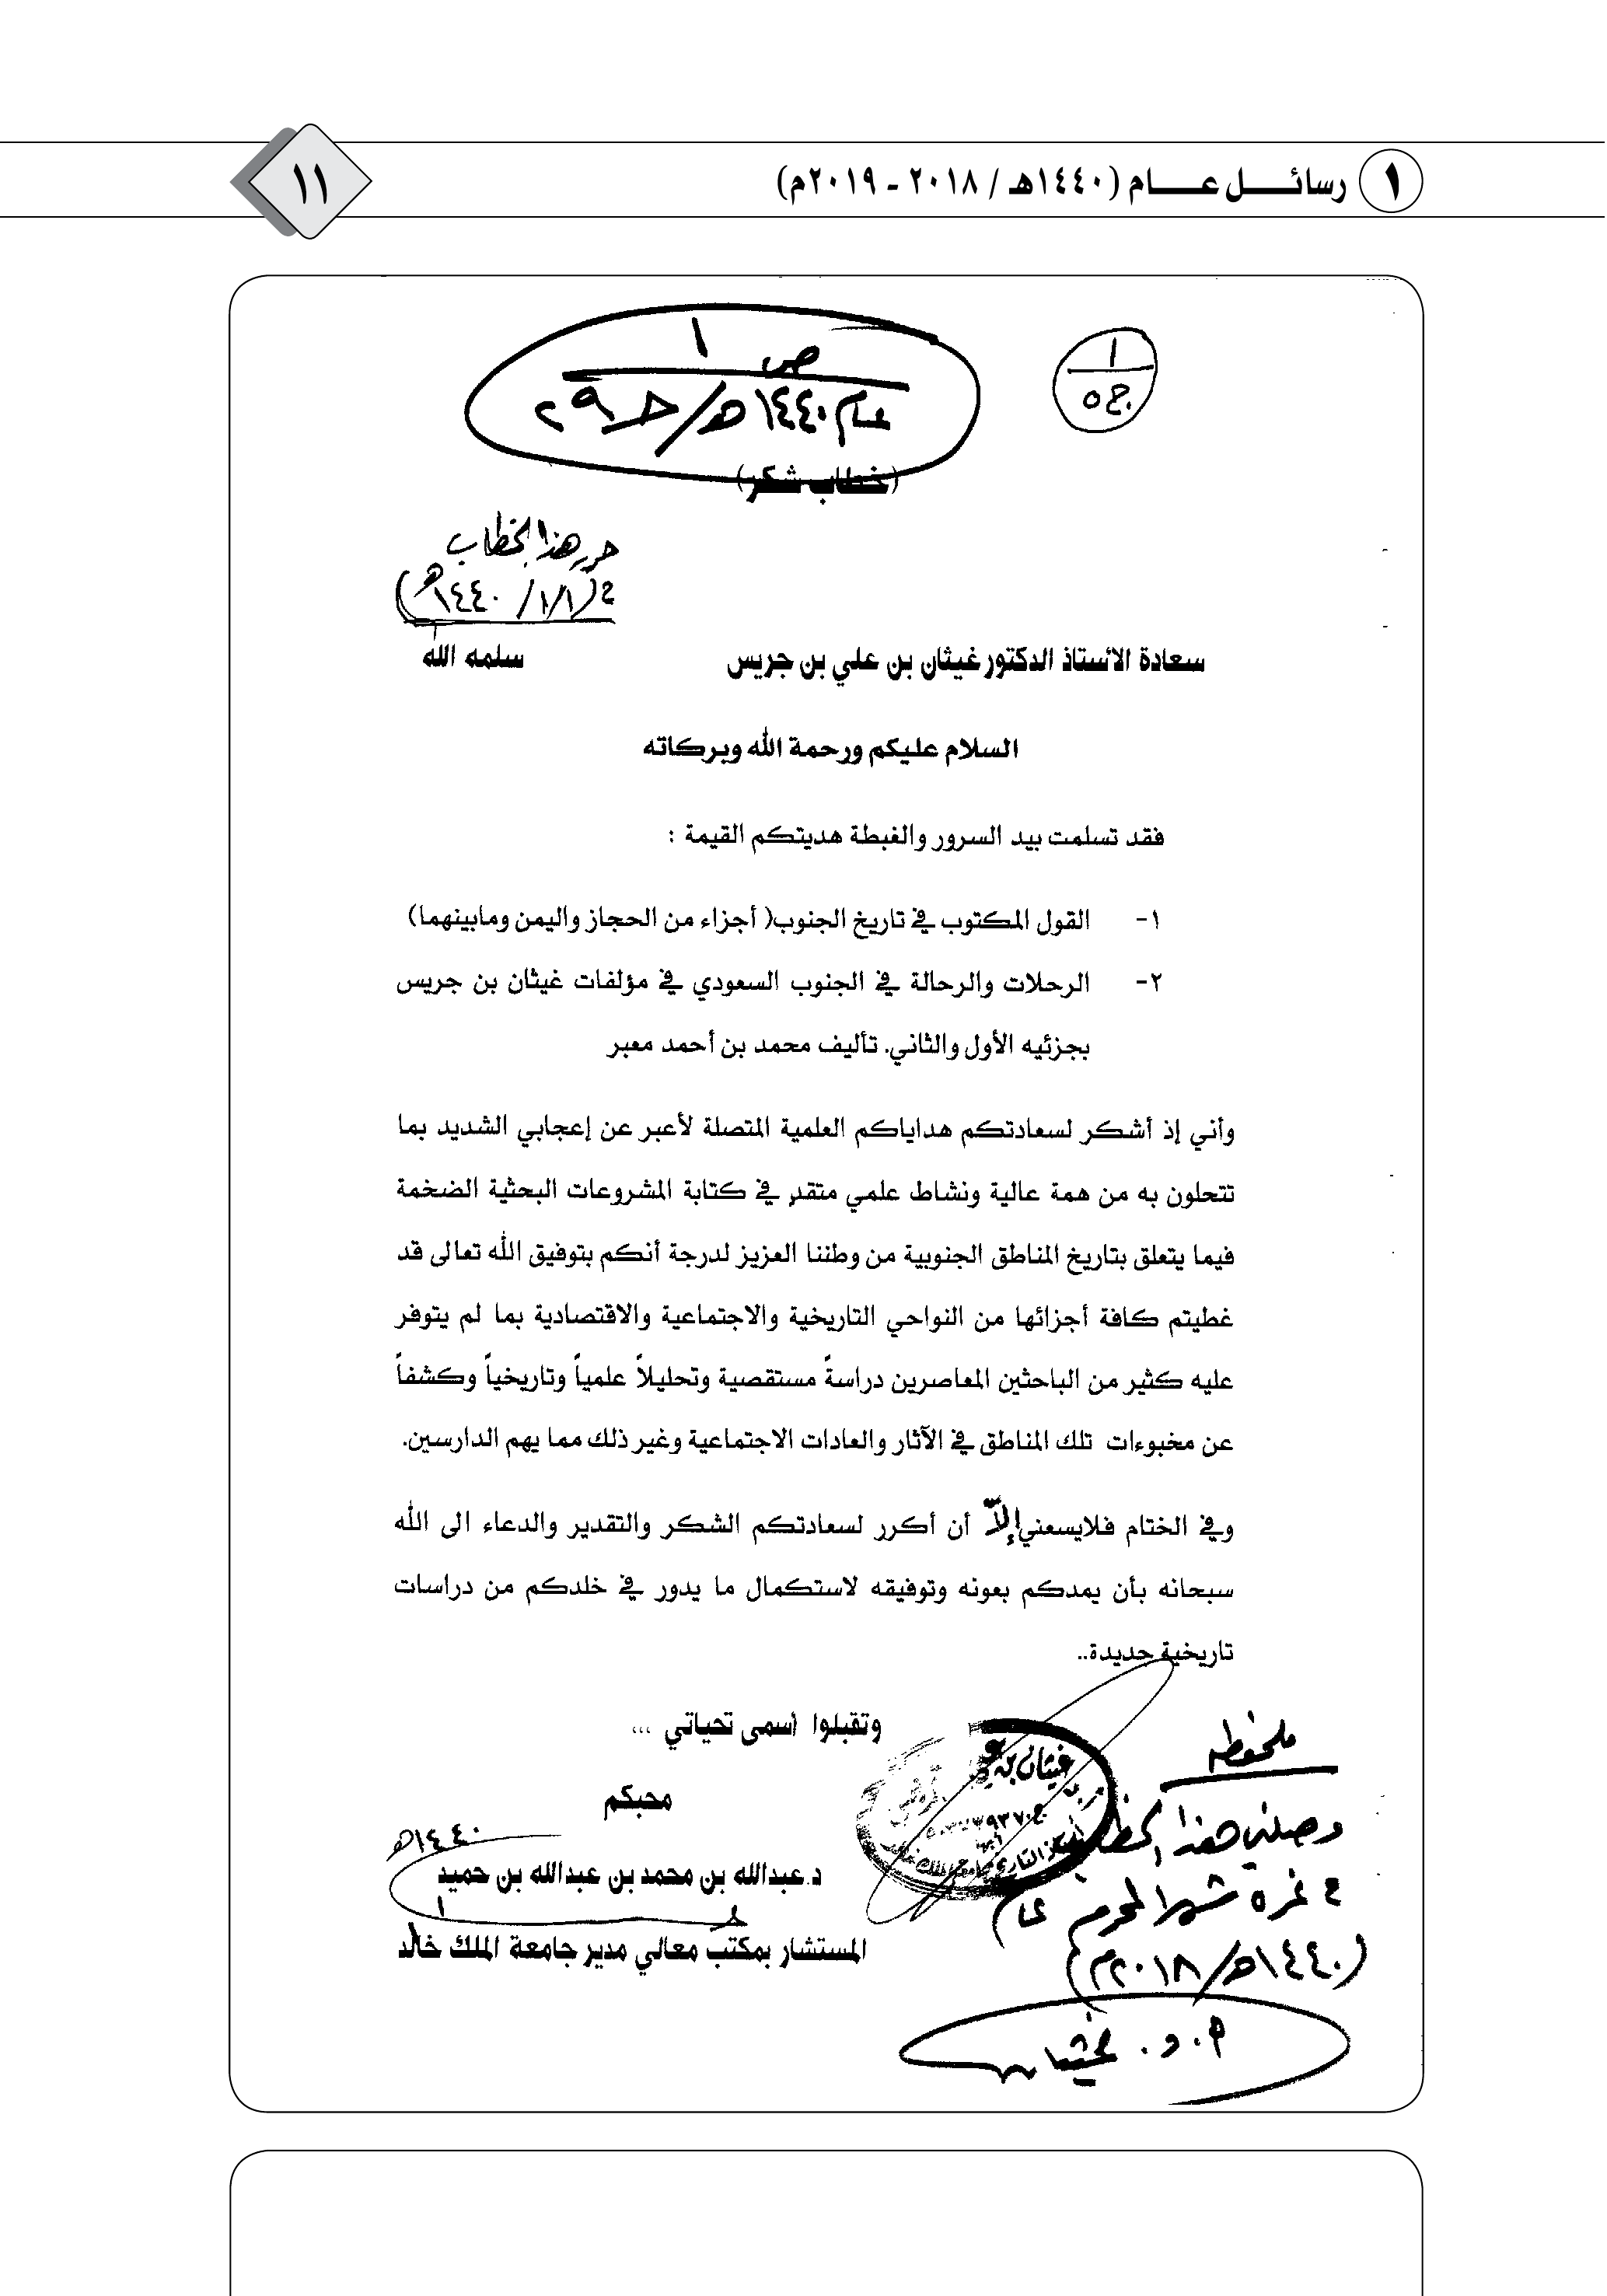 ١ رسائـــل عـــــام (١٤٤٠هـ / ٢٠١٨ - ٢٠١٩م)
١١
١
ج٥
ص ١
عام ١٤٤٠هـ/حـ ٢٩
(خطاب شكر)
حرر هذا الخطاب
في (١/١/١٤٤٠هـ)
سعادة الأستاذ الدكتور غيثان بن علي بن جريس سلمه الله
السلام عليكم ورحمة الله وبركاته
فقد تسلمت بيد السرور والغبطة هديتكم القيمة :
١- القول المكتوب في تاريخ الجنوب( أجزاء من الحجاز واليمن ومابينهما)
٢- الرحلات والرحالة في الجنوب السعودي في مؤلفات غيثان بن جريس
بجزئيه الأول والثاني. تأليف محمد بن أحمد معبر
وأني إذ أشكر لسعادتكم هداياكم العلمية المتصلة لأعبر عن إعجابي الشديد بما
تتحلون به من همة عالية ونشاط علمي متقدٍ في كتابة المشروعات البحثية الضخمة
فيما يتعلق بتاريخ المناطق الجنوبية من وطننا العزيز لدرجة أنكم بتوفيق الله تعالى قد
غطيتم كافة أجزائها من النواحي التاريخية والاجتماعية والاقتصادية بما لم يتوفر
عليه كثير من الباحثين المعاصرين دراسةً مستقصية وتحليلاً علمياً وتاريخياً وكشفاً
عن مخبوءات تلك المناطق في الآثار والعادات الاجتماعية وغير ذلك مما يهم الدارسين.
وفي الختام فلايسعني إلاّ أن أكرر لسعادتكم الشكر والتقدير والدعاء الى الله
سبحانه بأن يمدكم بعونه وتوفيقه لاستكمال ما يدور في خلدكم من دراسات
تاريخية جديدة..
وتقبلوا أسمى تحياتي ...
محبكم
١٤٤٠هـ
د. عبدالله بن محمد بن عبدالله بن حميد
المستشار بمكتب معالي مدير جامعة الملك خالد
غيثان بن
ملحوظة
وصلني هذا الخطاب
في غرة شهر المحرم عام
(١٤٤٠هـ/٢٠١٨م)
أ. د. غيثان